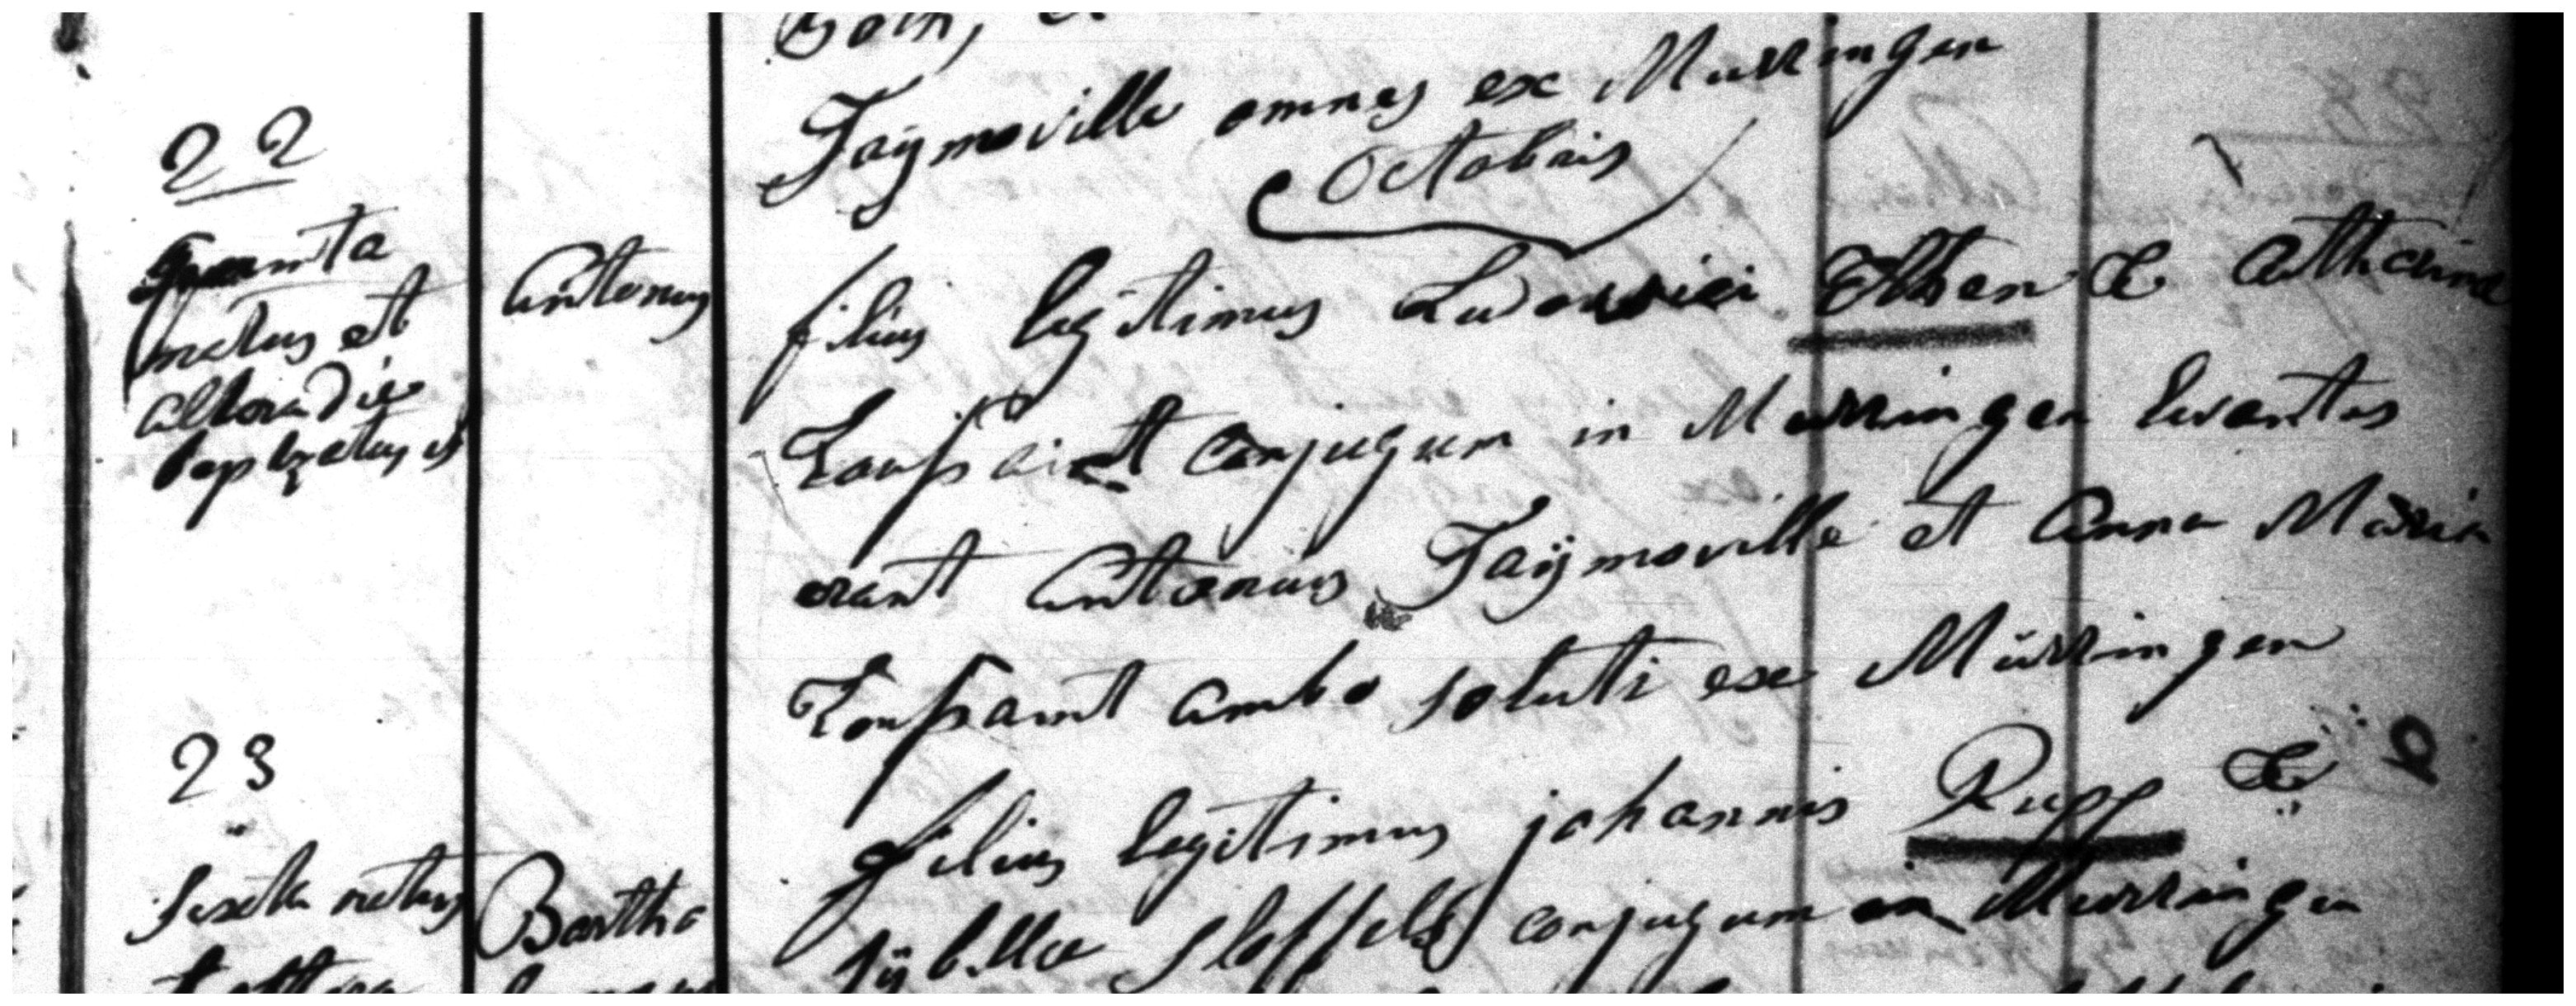 Faÿmoville omnes ex Mürringen
Octobris
22
quinta
natus et
altera die
baptizatus est
Antonius
filius legitimus Ludovici Elsen & Catharina
Toussaint conjugum in Mürringen levantes
erant Antonius Faÿmoville et Anna Maria
Toussaint ambo soluti ex Mürringen
23
sexta natus
Bartho
filius legitimus johannis Rupp &
sÿbilla Stoffels conjugum in Mürringen